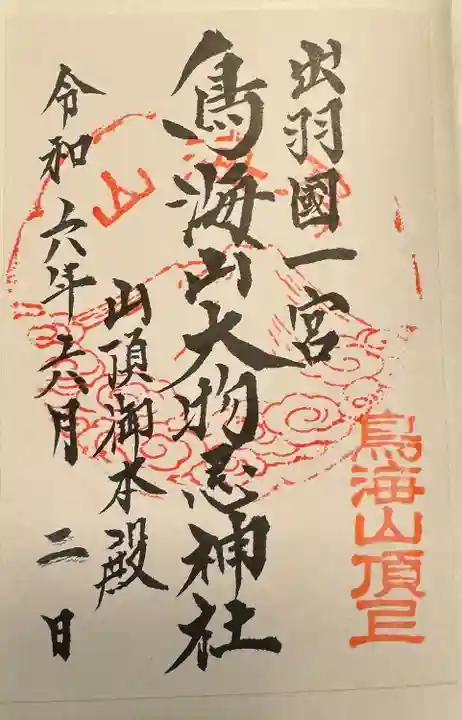 鳥海山頂上
出羽國一宮
鳥海山大物忌神社
山頂御本殿
令和六年八月二日
山